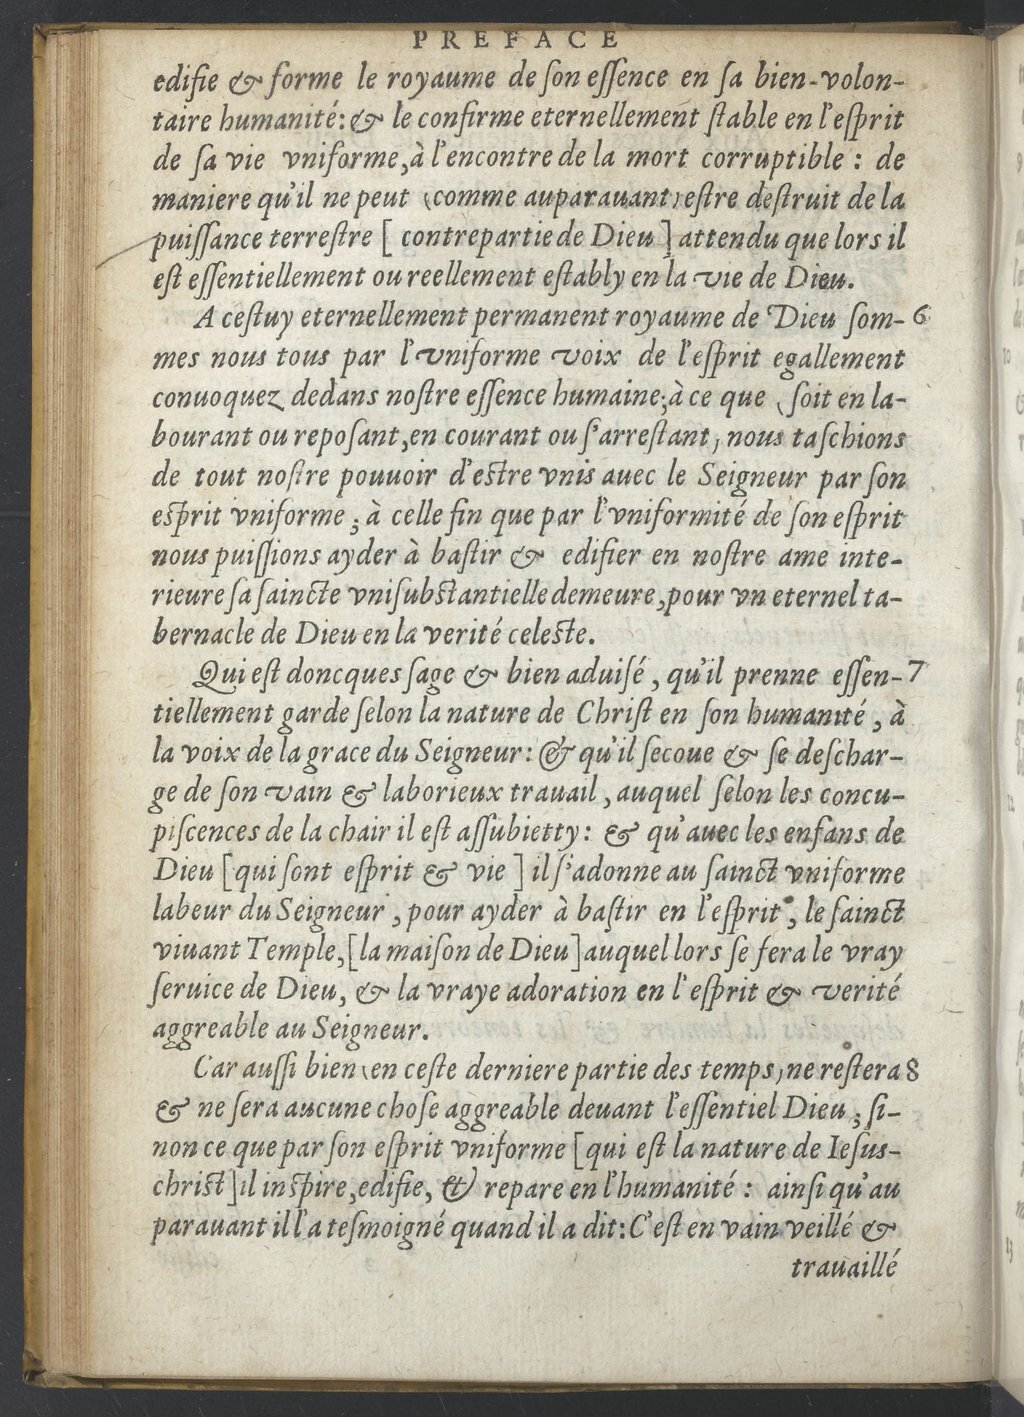 PREFACE
edifie & forme le royaume de ſon eſſence en ſa bien-volon-
taire humanité: & le confirme eternellement ſtable en l'eſprit
de ſa vie vniforme, à l'encontre de la mort corruptible : de
maniere qu'il ne peut (comme auparauant) eſtre deſtruit de la
puiſſance terreſtre [ contrepartie de Dieu ] attendu que lors il
eſt eſſentiellement ou reellement eſtably en la vie de Dieu.
A ceſtuy eternellement permanent royaume de Dieu ſom- 6
mes nous tous par l'vniforme voix de l'eſprit egallement
conuoquez dedans noſtre eſſence humaine; à ce que (ſoit en la-
bourant ou repoſant, en courant ou ſ'arreſtant) nous taſchions
de tout noſtre pouuoir d'eſtre vnis auec le Seigneur par ſon
eſprit vniforme ; à celle fin que par l'vniformité de ſon eſprit
nous puiſſions ayder à baſtir & edifier en noſtre ame inte-
rieure ſa ſaincte vniſubſtantielle demeure, pour vn eternel ta-
bernacle de Dieu en la verité celeſte.
Qui eſt doncques ſage & bien aduiſé , qu'il prenne eſſen- 7
tiellement garde ſelon la nature de Chriſt en ſon humanité , à
la voix de la grace du Seigneur: & qu'il ſecoue & ſe deſchar-
ge de ſon vain & laborieux trauail , auquel ſelon les concu-
piſcences de la chair il eſt aſſubietty: & qu'auec les enfans de
Dieu [ qui ſont eſprit & vie ] il ſ'adonne au ſainct vniforme
labeur du Seigneur , pour ayder à baſtir en l'eſprit , le ſainct
viuant Temple, [ la maiſon de Dieu ] auquel lors ſe fera le vray
ſeruice de Dieu, & la vraye adoration en l'eſprit & verité
aggreable au Seigneur.
Car auſſi bien (en ceſte derniere partie des temps) ne reſtera 8
& ne ſera aucune choſe aggreable deuant l'eſſentiel Dieu ; ſi-
non ce que par ſon eſprit vniforme [ qui eſt la nature de Ieſus-
chriſt ] il inſpire, edifie, & repare en l'humanité : ainſi qu'au
parauant il l'a teſmoigné quand il a dit: C'eſt en vain veillé &
trauaillé